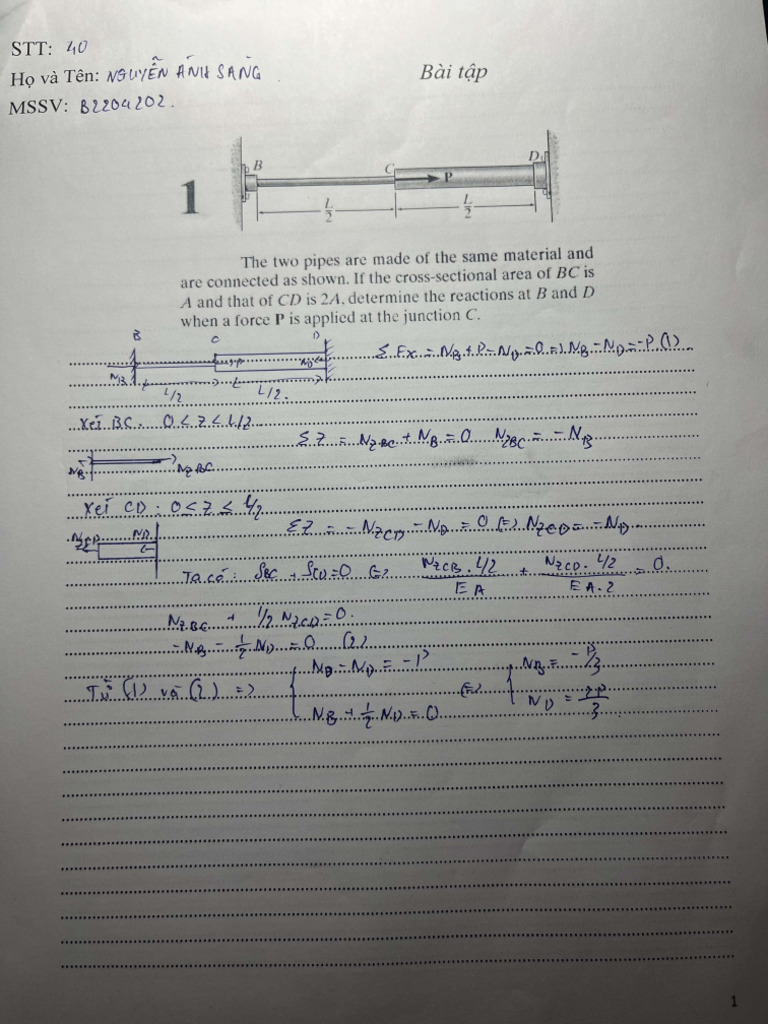 STT: 40
Họ và Tên: NGUYỄN ÁNH SÁNG
Bài tập
MSSV: B2204202.
B C P D
1
L/2 L/2
The two pipes are made of the same material and
are connected as shown. If the cross-sectional area of BC is
A and that of CD is 2A, determine the reactions at B and D
when a force P is applied at the junction C.
B C D
ΣFx = NB + P - ND = 0 => NB - ND = -P (1)
NB P ND
L/2 L/2.
Xét BC: 0 ≤ Z ≤ L/2
ΣZ = NZBC + NB = 0 NZBC = - NB
NB NZBC
Xét CD: 0 ≤ Z ≤ L/2
NZCD ND
ΣZ = - NZCD - ND = 0 (=) NZCD = - ND
Ta có: δBC + δCD = 0 (=) NZCB . L/2 / EA + NZCD . L/2 / EA.2 = 0.
NZBC + 1/2 NZCD = 0.
- NB - 1/2 ND = 0 (2)
Từ (1) và (2) => { NB - ND = -P (=) { NB = -P/3
NB + 1/2 ND = 0 ND = 2P/3
1